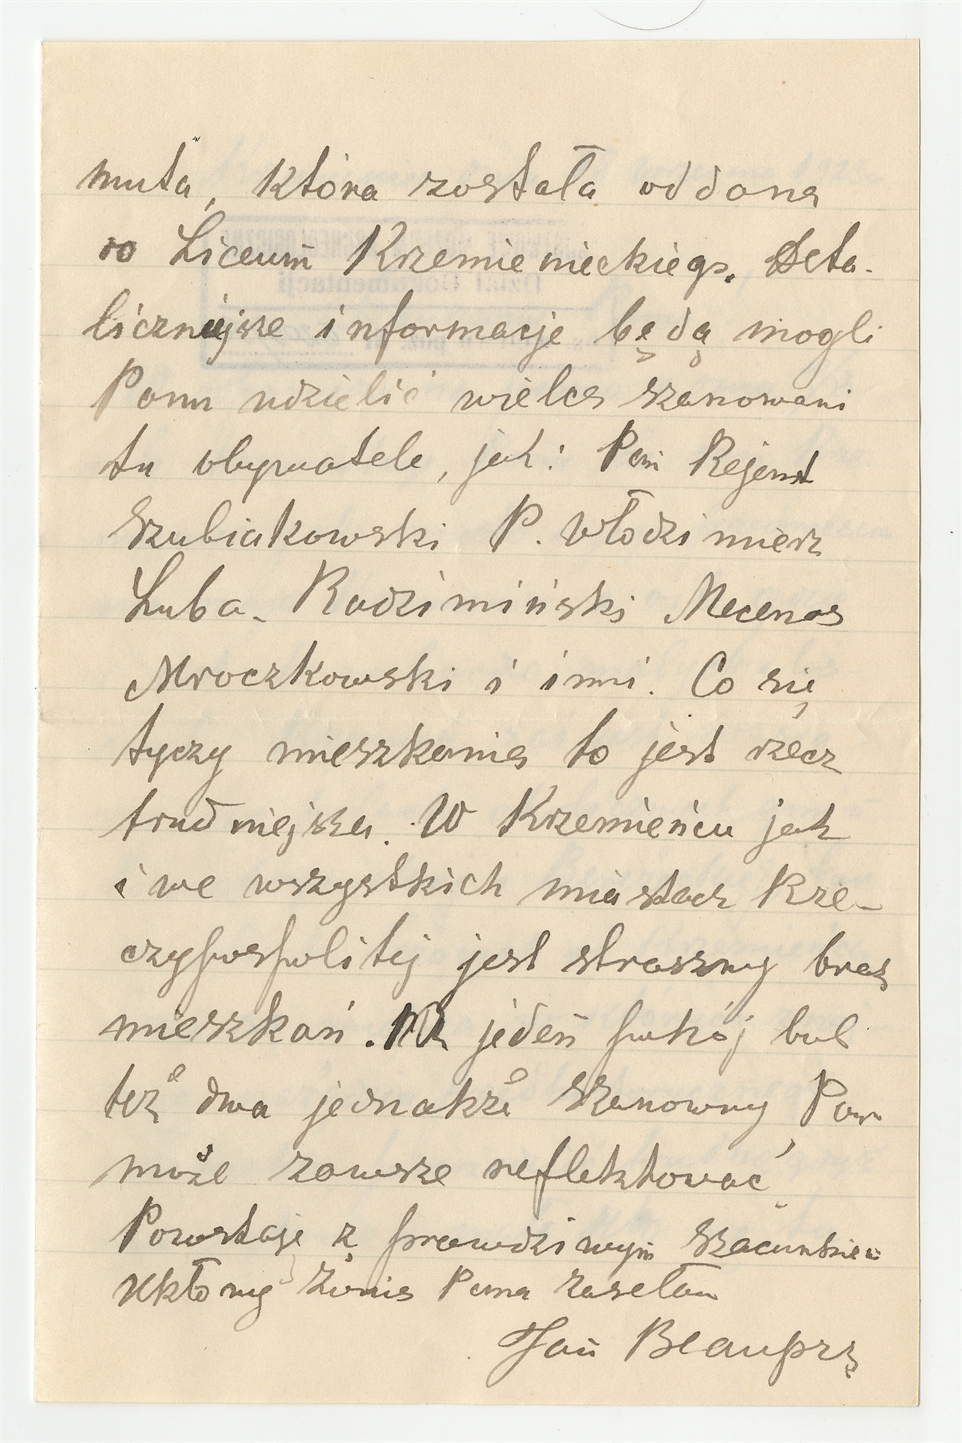 muta, która została oddana
do Liceum Krzemienieckiego. Deta-
liczniejsze informacje będą mogli
Panu udzielić wielce szanowani
tu obywatele, jak: Pan Rejent
Szubiakowski P. Włodzimierz
Luba-Radzimiński Mecenas
Mroczkowski i inni. Co się
tyczy mieszkania to jest rzecz
trudniejsza. W Krzemieńcu jak
i we wszystkich miastach Rze-
czypospolitej jest straszny brak
mieszkań. Na jeden pokój lub
też dwa jednakże Szanowny Pan
może zawsze reflektować
Pozostaję z prawdziwym szacunkiem
Ukłony Żonie Pana zasełam
Jan Beaupré